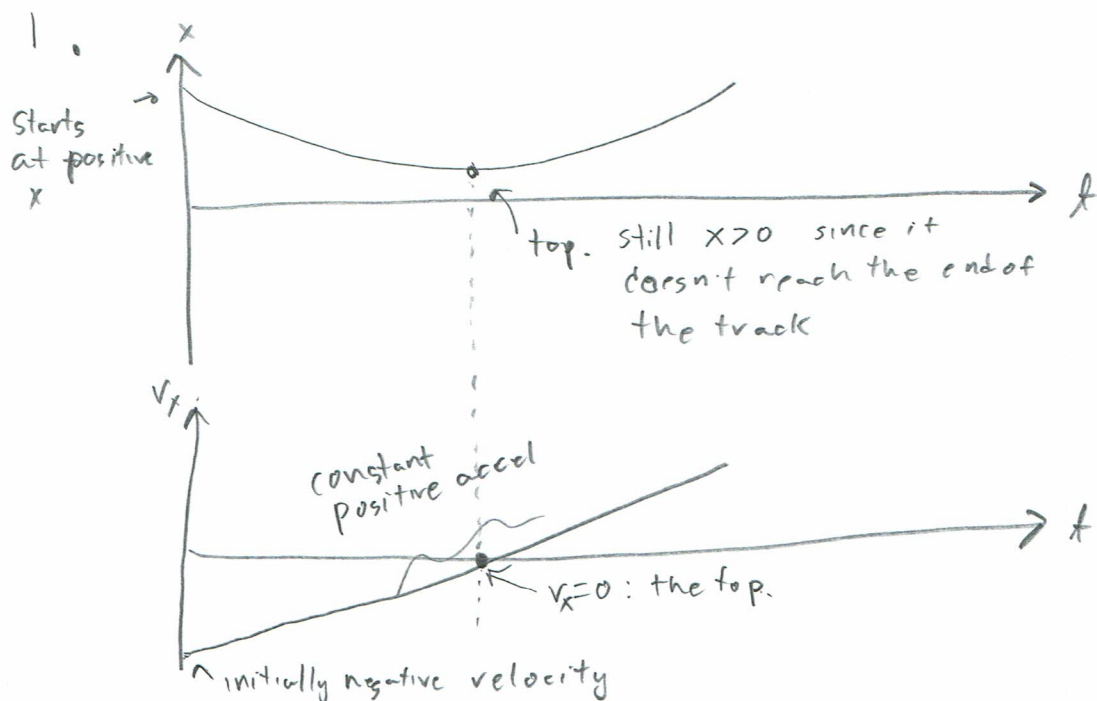 1.
x
Starts
at positive
x
t
top. still x>0 since it
doesn't reach the end of
the track
Vx
constant
positive accel
t
Vx=0: the top.
initially negative velocity